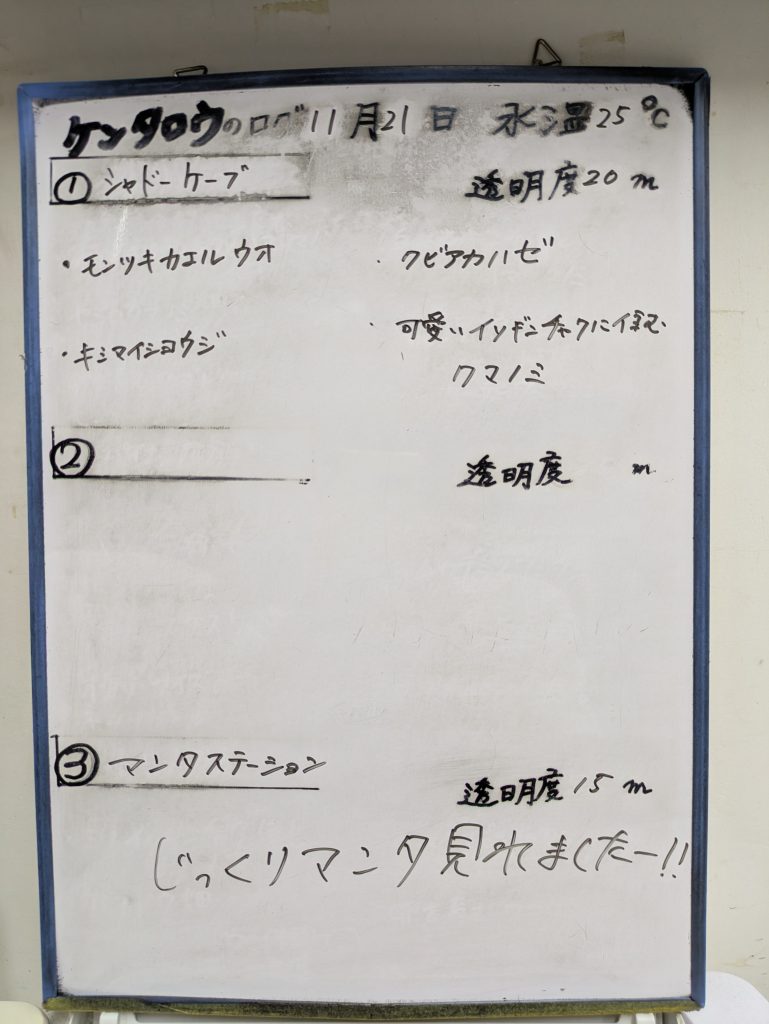 ケンタロウのログ 11月21日 水温25℃
① シャドーケーブ 透明度20m
・モンツキカエルウオ ・クビアカハゼ
・キシマイショウジ ・可愛いイソギンチャクに住む
クマノミ
② 透明度 m
③ マンタステーション 透明度15m
じっくりマンタ見れましたー!!